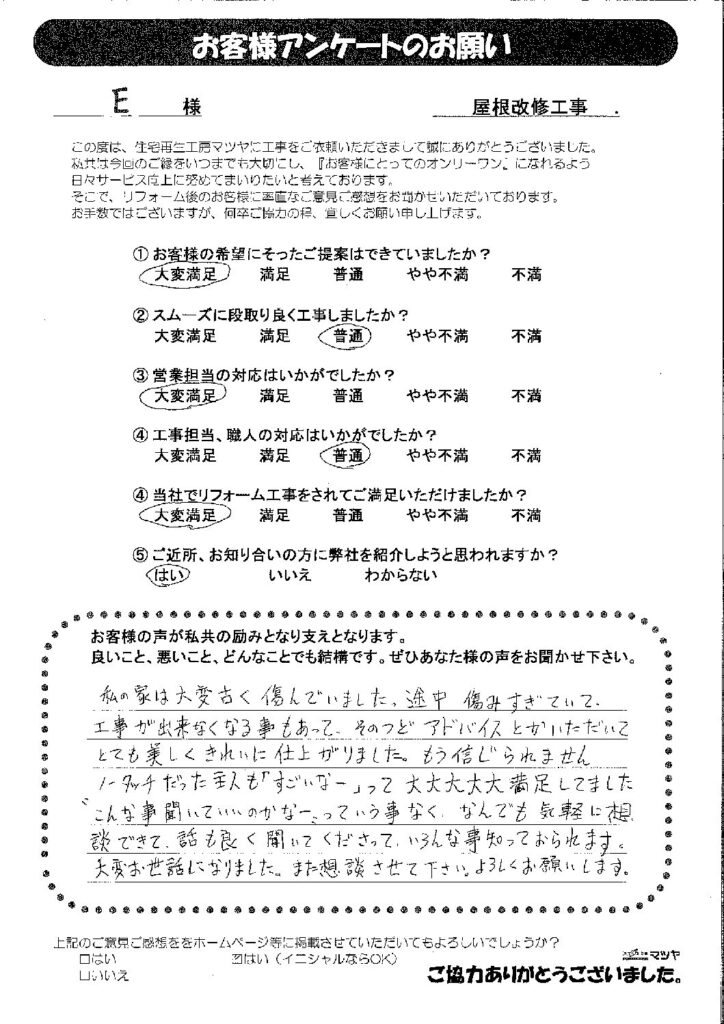 お客様アンケートのお願い
E 様 屋根改修工事 .
この度は、住宅再生工房マツヤに工事をご依頼いただきまして誠にありがとうございました。
私共は今回のご縁をいつまでも大切にし、『お客様にとってのオンリーワン』になれるよう
日々サービス向上に努めてまいりたいと考えております。
そこで、リフォーム後のお客様に率直なご意見ご感想をお聞かせいただいております。
お手数ではございますが、何卒ご協力の得、宜しくお願い申し上げます。
① お客様の希望にそったご提案はできていましたか？
大変満足 満足 普通 やや不満 不満
② スムーズに段取り良く工事しましたか？
大変満足 満足 普通 やや不満 不満
③ 営業担当の対応はいかがでしたか？
大変満足 満足 普通 やや不満 不満
④ 工事担当、職人の対応はいかがでしたか？
大変満足 満足 普通 やや不満 不満
④ 当社でリフォーム工事をされてご満足いただけましたか？
大変満足 満足 普通 やや不満 不満
⑤ ご近所、お知り合いの方に弊社を紹介しようと思われますか？
はい いいえ わからない
お客様の声が私共の励みとなり支えとなります。
良いこと、悪いこと、どんなことでも結構です。ぜひあなた様の声をお聞かせ下さい。
私の家は大変古く傷んでいました。途中 傷みすぎていて、
工事が出来なくなる事もあって、そのつど アドバイスとかいただいて
とても美しくきれいに仕上がりました。もう信じられません
ノータッチだった主人も「すごいなー」って 大大大大大満足してました
"こんな事聞いていいのかなー"っていう事なく、なんでも 気軽に想
談できて、話も良く聞いてくださって、いろんな事知っておられます。
大変お世話になりました。また想談させて下さい。よろしくお願いします。
上記のご意見ご感想ををホームページ等に掲載させていただいてもよろしいでしょうか？
□はい ☑はい（イニシャルならOK）
□いいえ
マツヤ
ご協力ありがとうございました。